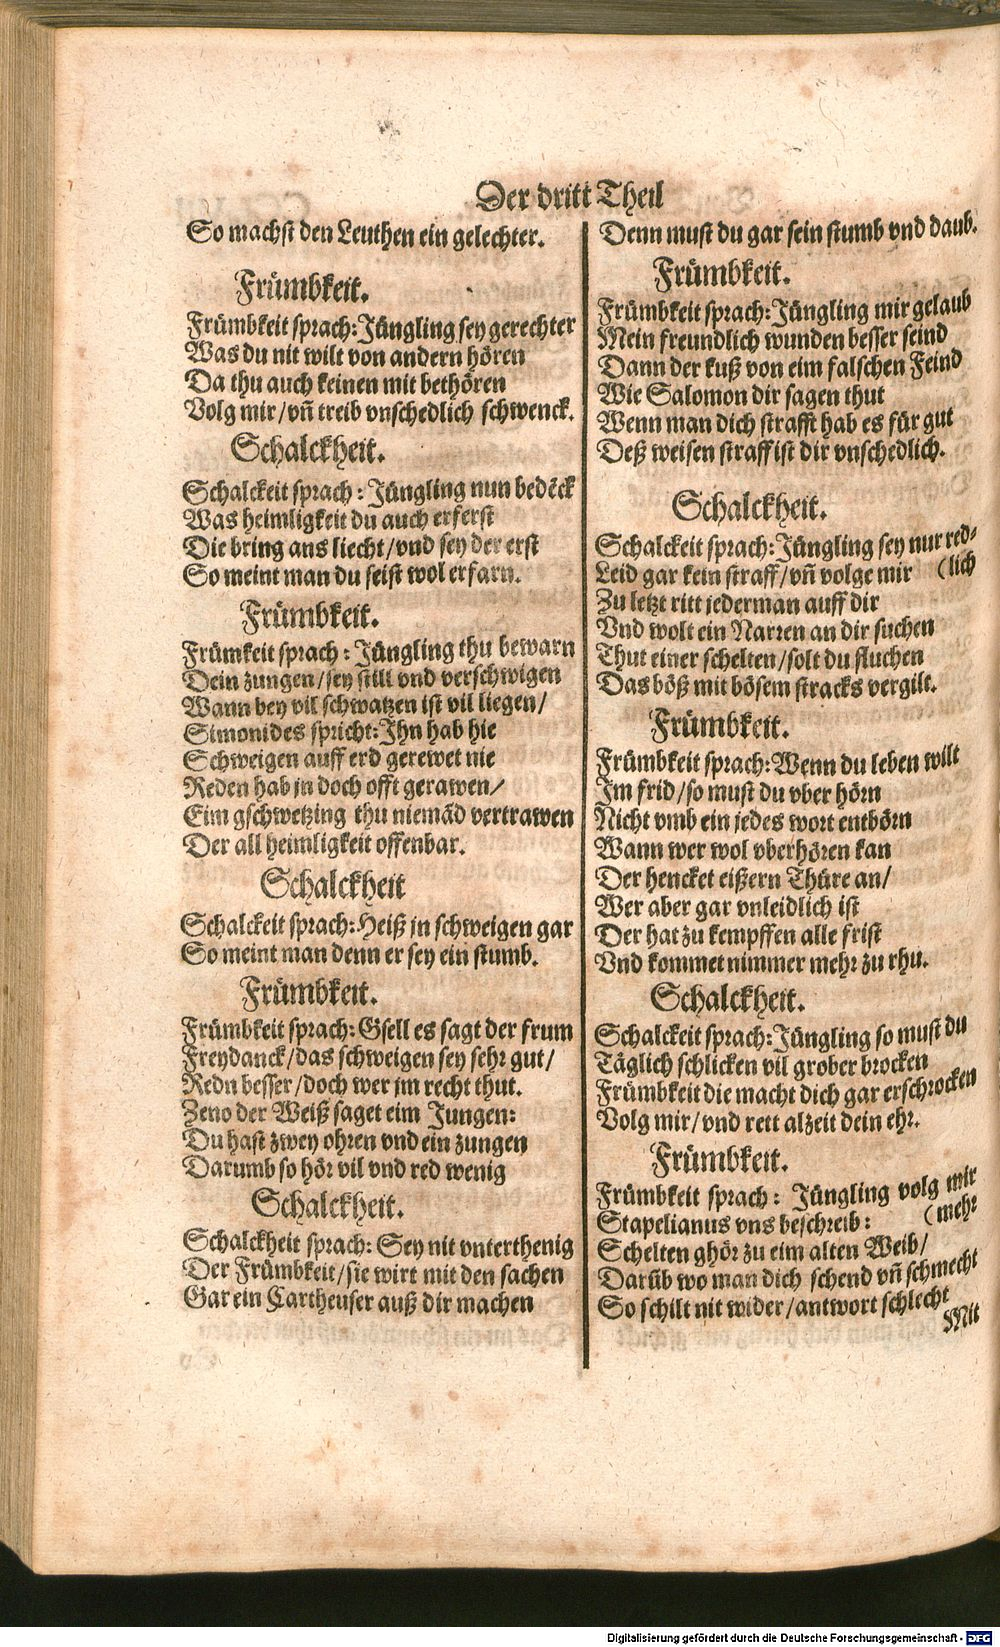 Der dritt Theil
So machst den Leuthen ein gelechter.
Frümbkeit.
Frümbkeit sprach: Jüngling sey gerechter
Was du nit wilt von andern hören
Da thu auch keinen mit bethören
Volg mir/ vñ treib vnschedlich schwenck.
Schalckheit.
Schalckeit sprach: Jüngling nun bedēck
Was heimligkeit du auch erferst
Die bring ans liecht/ vnd sey der erst
So meint man du seist wol erfarn.
Frümbkeit.
Frümkeit sprach: Jüngling thu bewarn
Dein zungen/ sey still vnd verschwigen
Wann bey vil schwatzen ist vil liegen/
Simonides spricht: Ihn hab hie
Schweigen auff erd gerewet nie
Reden hab jn doch offt gerawen/
Eim gschwetzing thu niemād vertrawen
Der all heimligkeit offenbar.
Schalckheit
Schalckeit sprach: Heiß jn schweigen gar
So meint man denn er sey ein stumb.
Frümbkeit.
Frümbkeit sprach: Gsell es sagt der frum
Freydanck/ das schweigen sey sehr gut/
Redn besser/ doch wer jm recht thut.
Zeno der Weiß saget eim Jungen:
Du hast zwey ohren vnd ein zungen
Darumb so hör vil vnd red wenig
Schalckheit.
Schalckheit sprach: Sey nit vnterthenig
Der Frümbkeit/ sie wirt mit den sachen
Gar ein Cartheuser auß dir machen
Denn must du gar sein stumb vnd daub.
Frümbkeit.
Frümbkeit sprach: Jüngling mir gelaub
Mein freundlich wunden besser seind
Dann der kuß von eim falschen Feind
Wie Salomon dir sagen thut
Wenn man dich strafft hab es für gut
Deß weisen straff ist dir vnschedlich.
Schalckheit.
Schalckeit sprach: Jüngling sey nur red-
Leid gar kein straff/ vñ volge mir (lich
Zu letzt ritt jederman auff dir
Vnd wolt ein Narren an dir suchen
Thut einer schelten/ solt du fluchen
Das böß mit bösem stracks vergilt.
Frümbkeit.
Frümbkeit sprach: Wenn du leben wilt
Im frid/ so must du vber hörn
Nicht vmb ein jedes wort entbörn
Wann wer wol vberhören kan
Der hencket eißern Thüre an/
Wer aber gar vnleidlich ist
Der hat zu kempffen alle frist
Vnd kommet nimmer mehr zu rhu.
Schalckheit.
Schalckeit sprach: Jüngling so must du
Täglich schlicken vil grober brocken
Frümbkeit die macht dich gar erschrocken
Volg mir/ vnd rett alzeit dein ehr.
Frümbkeit.
Frümbkeit sprach: Jüngling volg mir
Stapelianus vns beschreib: (mehr
Schelten ghör zu eim alten Weib/
Darüb wo man dich schend vñ schmecht
So schilt nit wider/ antwort schlecht
Mit
Digitalisierung gefördert durch die Deutsche Forschungsgemeinschaft - DFG